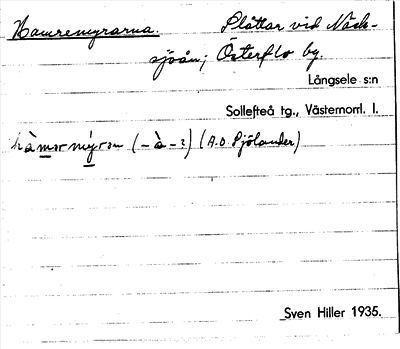 Hamremyrarna. Slåttar vid Näck-
sjöån; Österflo by.
Långsele s:n
Sollefteå tg., Västernorrl. l.
hàmərmýrən (-à-:) (A.O. Sjölander)
Sven Hiller 1935.